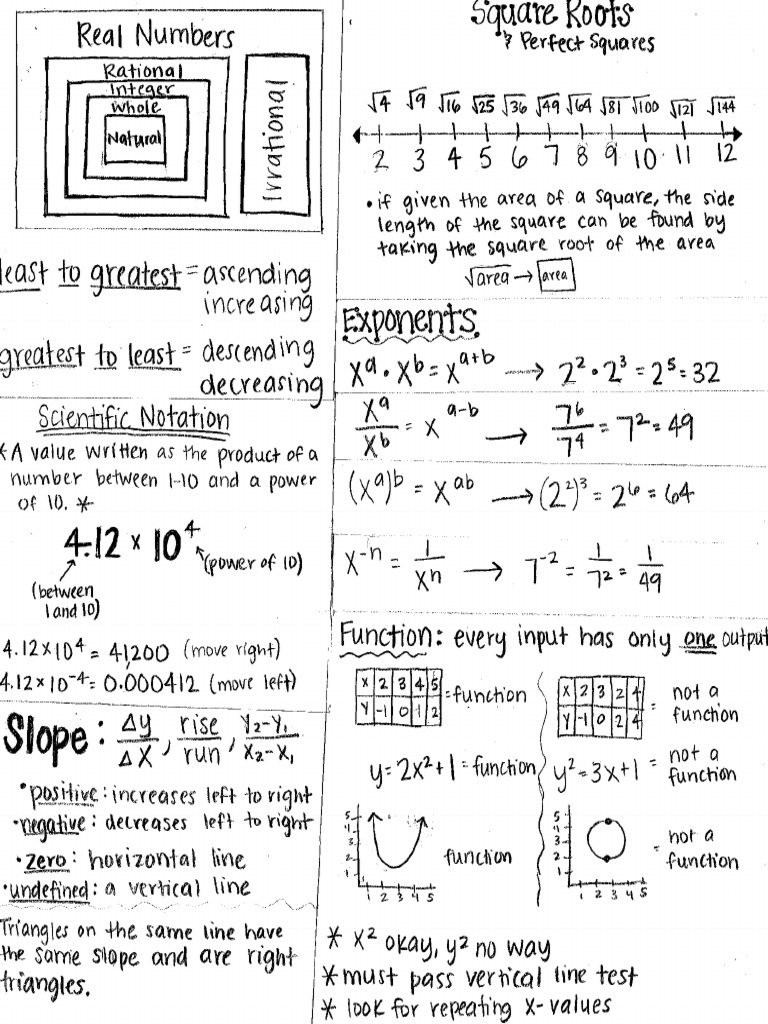 Real Numbers
Rational
Integer
Whole
Natural
Irrational
least to greatest = ascending
increasing
greatest to least = descending
decreasing
Scientific Notation
* A value written as the product of a
number between 1-10 and a power
of 10. *
4.12 × 10⁴
(power of 10)
(between
1 and 10)
4.12×10⁴ = 41,200 (move right)
4.12×10⁻⁴ = 0.000412 (move left)
Slope: Δy/Δx, rise/run, y₂-y₁/x₂-x₁
• positive: increases left to right
• negative: decreases left to right
• zero: horizontal line
• undefined: a vertical line
Triangles on the same line have
the same slope and are right
triangles.
Square Roots
& Perfect Squares
√4 √9 √16 √25 √36 √49 √64 √81 √100 √121 √144
2 3 4 5 6 7 8 9 10 11 12
• if given the area of a square, the side
length of the square can be found by
taking the square root of the area
√area → area
Exponents
xᵃ • xᵇ = xᵃ⁺ᵇ → 2² • 2³ = 2⁵ = 32
xᵃ/xᵇ = xᵃ⁻ᵇ → 7⁶/7⁴ = 7² = 49
(xᵃ)ᵇ = xᵃᵇ → (2²)³ = 2⁶ = 64
x⁻ⁿ = 1/xⁿ → 7⁻² = 1/7² = 1/49
Function: every input has only one output
x 2 3 4 5
y -1 0 1 2
= function
x 2 3 2 4
y -1 0 2 4
= not a
function
y = 2x² + 1 = function
y² = 3x + 1 = not a
function
5
4
3
2
1
1 2 3 4 5
function
5
4
3
2
1
1 2 3 4 5
= not a
function
* x² okay, y² no way
* must pass vertical line test
* look for repeating x-values